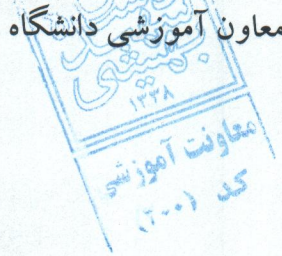 معاون آموزشی دانشگاه
بهشتی
۱۳۳۸
معاونت آموزشی
کد (۲۰۰)